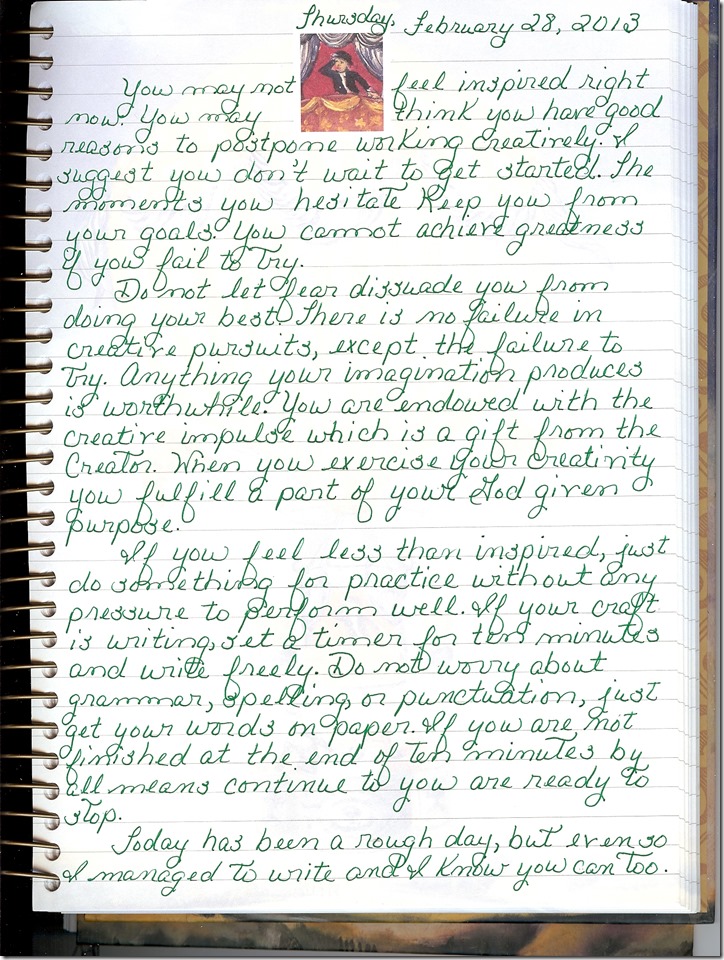 Thursday, February 28, 2013
You may not feel inspired right
now. You may think you have good
reasons to postpone working creatively. I
suggest you don't wait to get started. The
moments you hesitate keep you from
your goals. You cannot achieve greatness
if you fail to try.
Do not let fear dissuade you from
doing your best. There is no failure in
creative pursuits, except the failure to
try. Anything your imagination produces
is worthwhile. You are endowed with the
creative impulse which is a gift from the
Creator. When you exercise your creativity
you fulfill a part of your God given
purpose.
If you feel less than inspired, just
do something for practice without any
pressure to perform well. If your craft
is writing, set a timer for ten minutes
and write freely. Do not worry about
grammar, spelling, or punctuation, just
get your words on paper. If you are not
finished at the end of ten minutes by
all means continue to you are ready to
stop.
Today has been a rough day, but even so
I managed to write and I know you can too.